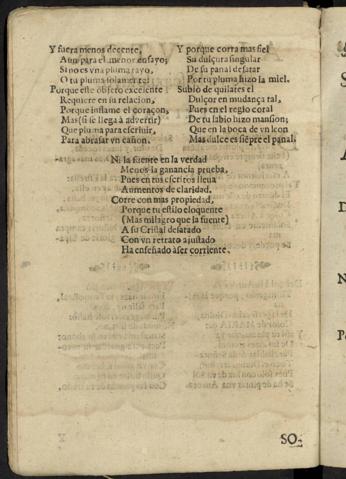 Y fuera menos decente,
Aun para el menor ensayo;
Si no es vna pluma rayo,
O tu pluma solamente.
Porque este obsero excelente
Requiere en su relacion,
Porque inflame el coraçon,
Mas (si se llega à advertir)
Que pluma para escriuir,
Para abrasar vn cañon.
Y porque corra mas fiel
Su dulçura singular
De su panal desatar
Por tu pluma hizo la miel.
Subiò de quilates el
Dulçor en mudança tal,
Pues en el regio coral
De tu labio hizo mansion;
Que en la boca de vn leon
Mas dulce es siẽpre el panal.
Ni la fuente en la verdad
Menos la ganancia prueba,
Pues en tus escritos lleua
Aumentos de claridad.
Corre con mas propiedad,
Porque tu estilo eloquente
(Mas milagro que la fuente)
A su Cristal desatado
Con vn retrato ajustado
Ha enseñado à ser corriente.
SO-